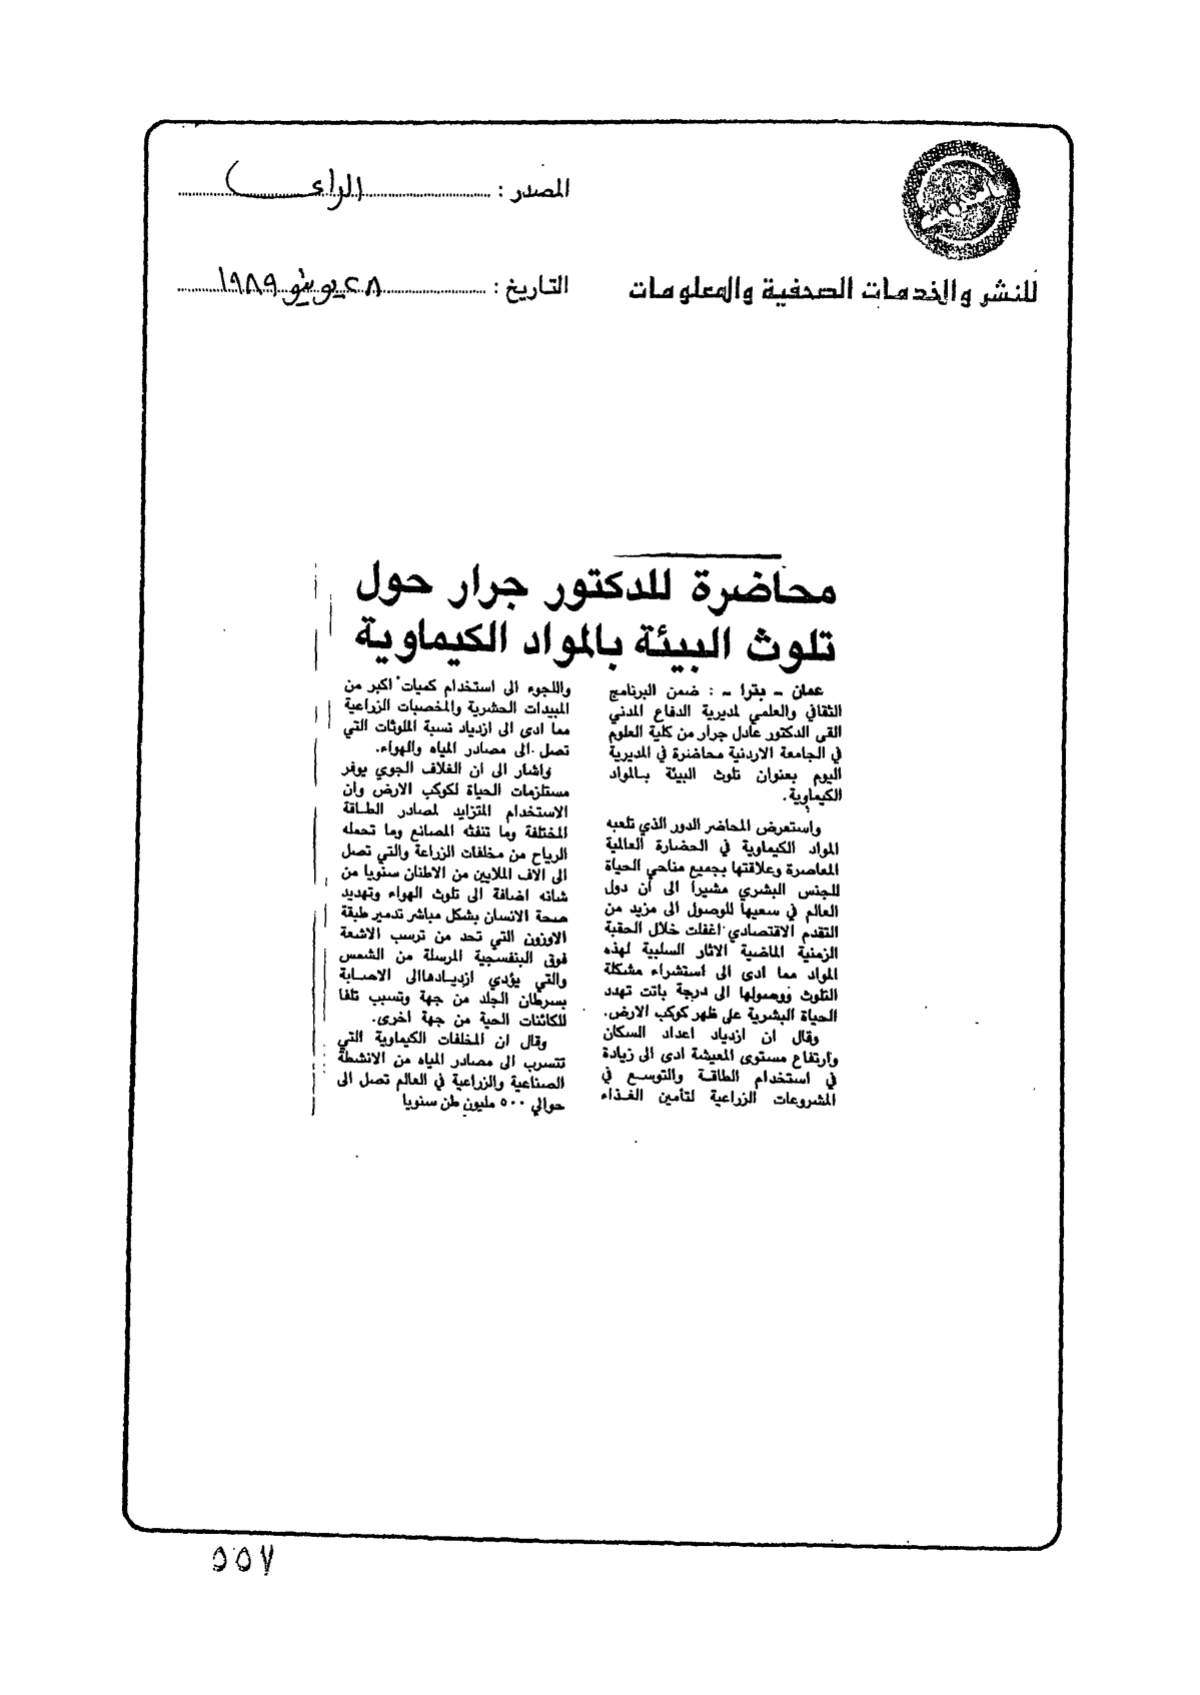 المصدر : الراي
للنشر والخدمات الصحفية والمعلومات
التاريخ : ٢٨ يونيو ١٩٨٩
محاضرة للدكتور جرار حول
تلوث البيئة بالمواد الكيماوية
عمان - بترا - : ضمن البرنامج
الثقافي والعلمي لمديرية الدفاع المدني
القى الدكتور عادل جرار من كلية العلوم
في الجامعة الاردنية محاضرة في المديرية
اليوم بعنوان تلوث البيئة بالمواد
الكيماوية.
واستعرض المحاضر الدور الذي تلعبه
المواد الكيماوية في الحضارة العالمية
المعاصرة وعلاقتها بجميع مناحي الحياة
للجنس البشري مشيرا الى أن دول
العالم في سعيها للوصول الى مزيد من
التقدم الاقتصادي اغفلت خلال الحقبة
الزمنية الماضية الاثار السلبية لهذه
المواد مما ادى الى استشراء مشكلة
التلوث ووصولها الى درجة باتت تهدد
الحياة البشرية على ظهر كوكب الارض.
وقال ان ازدياد اعداد السكان
وارتفاع مستوى المعيشة ادى الى زيادة
في استخدام الطاقة والتوسع في
المشروعات الزراعية لتأمين الغذاء
واللجوء الى استخدام كميات اكبر من
المبيدات الحشرية والمخصبات الزراعية
مما ادى الى ازدياد نسبة الملوثات التي
تصل الى مصادر المياه والهواء.
واشار الى ان الغلاف الجوي يوفر
مستلزمات الحياة لكوكب الارض وان
الاستخدام المتزايد لمصادر الطاقة
المختلفة وما تنفثه المصانع وما تحمله
الرياح من مخلفات الزراعة والتي تصل
الى الاف الملايين من الاطنان سنويا من
شانه اضافة الى تلوث الهواء وتهديد
صحة الانسان بشكل مباشر تدمير طبقة
الاوزون التي تحد من ترسب الاشعة
فوق البنفسجية المرسلة من الشمس
والتي يؤدي ازديادهاالى الاصابة
بسرطان الجلد من جهة وتسبب تلفا
للكائنات الحية من جهة اخرى.
وقال ان المخلفات الكيماوية التي
تتسرب الى مصادر المياه من الانشطة
الصناعية والزراعية في العالم تصل الى
حوالي ٥٠٠ مليون طن سنويا
٥٥٧